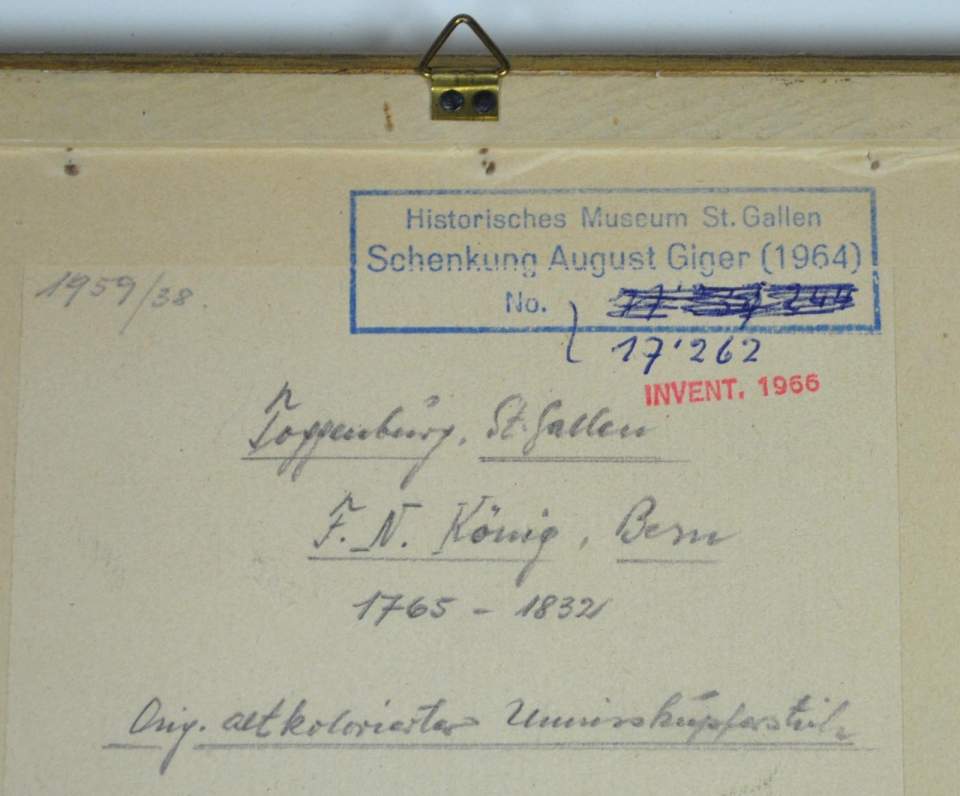 Historisches Museum St. Gallen
Schenkung August Giger (1964)
1959/38.
No.
17'262
INVENT. 1966
Toggenburg, St. Gallen
F. N. König, Bern
1765 - 1832
Orig. altkolorierter Umrisskupferstich